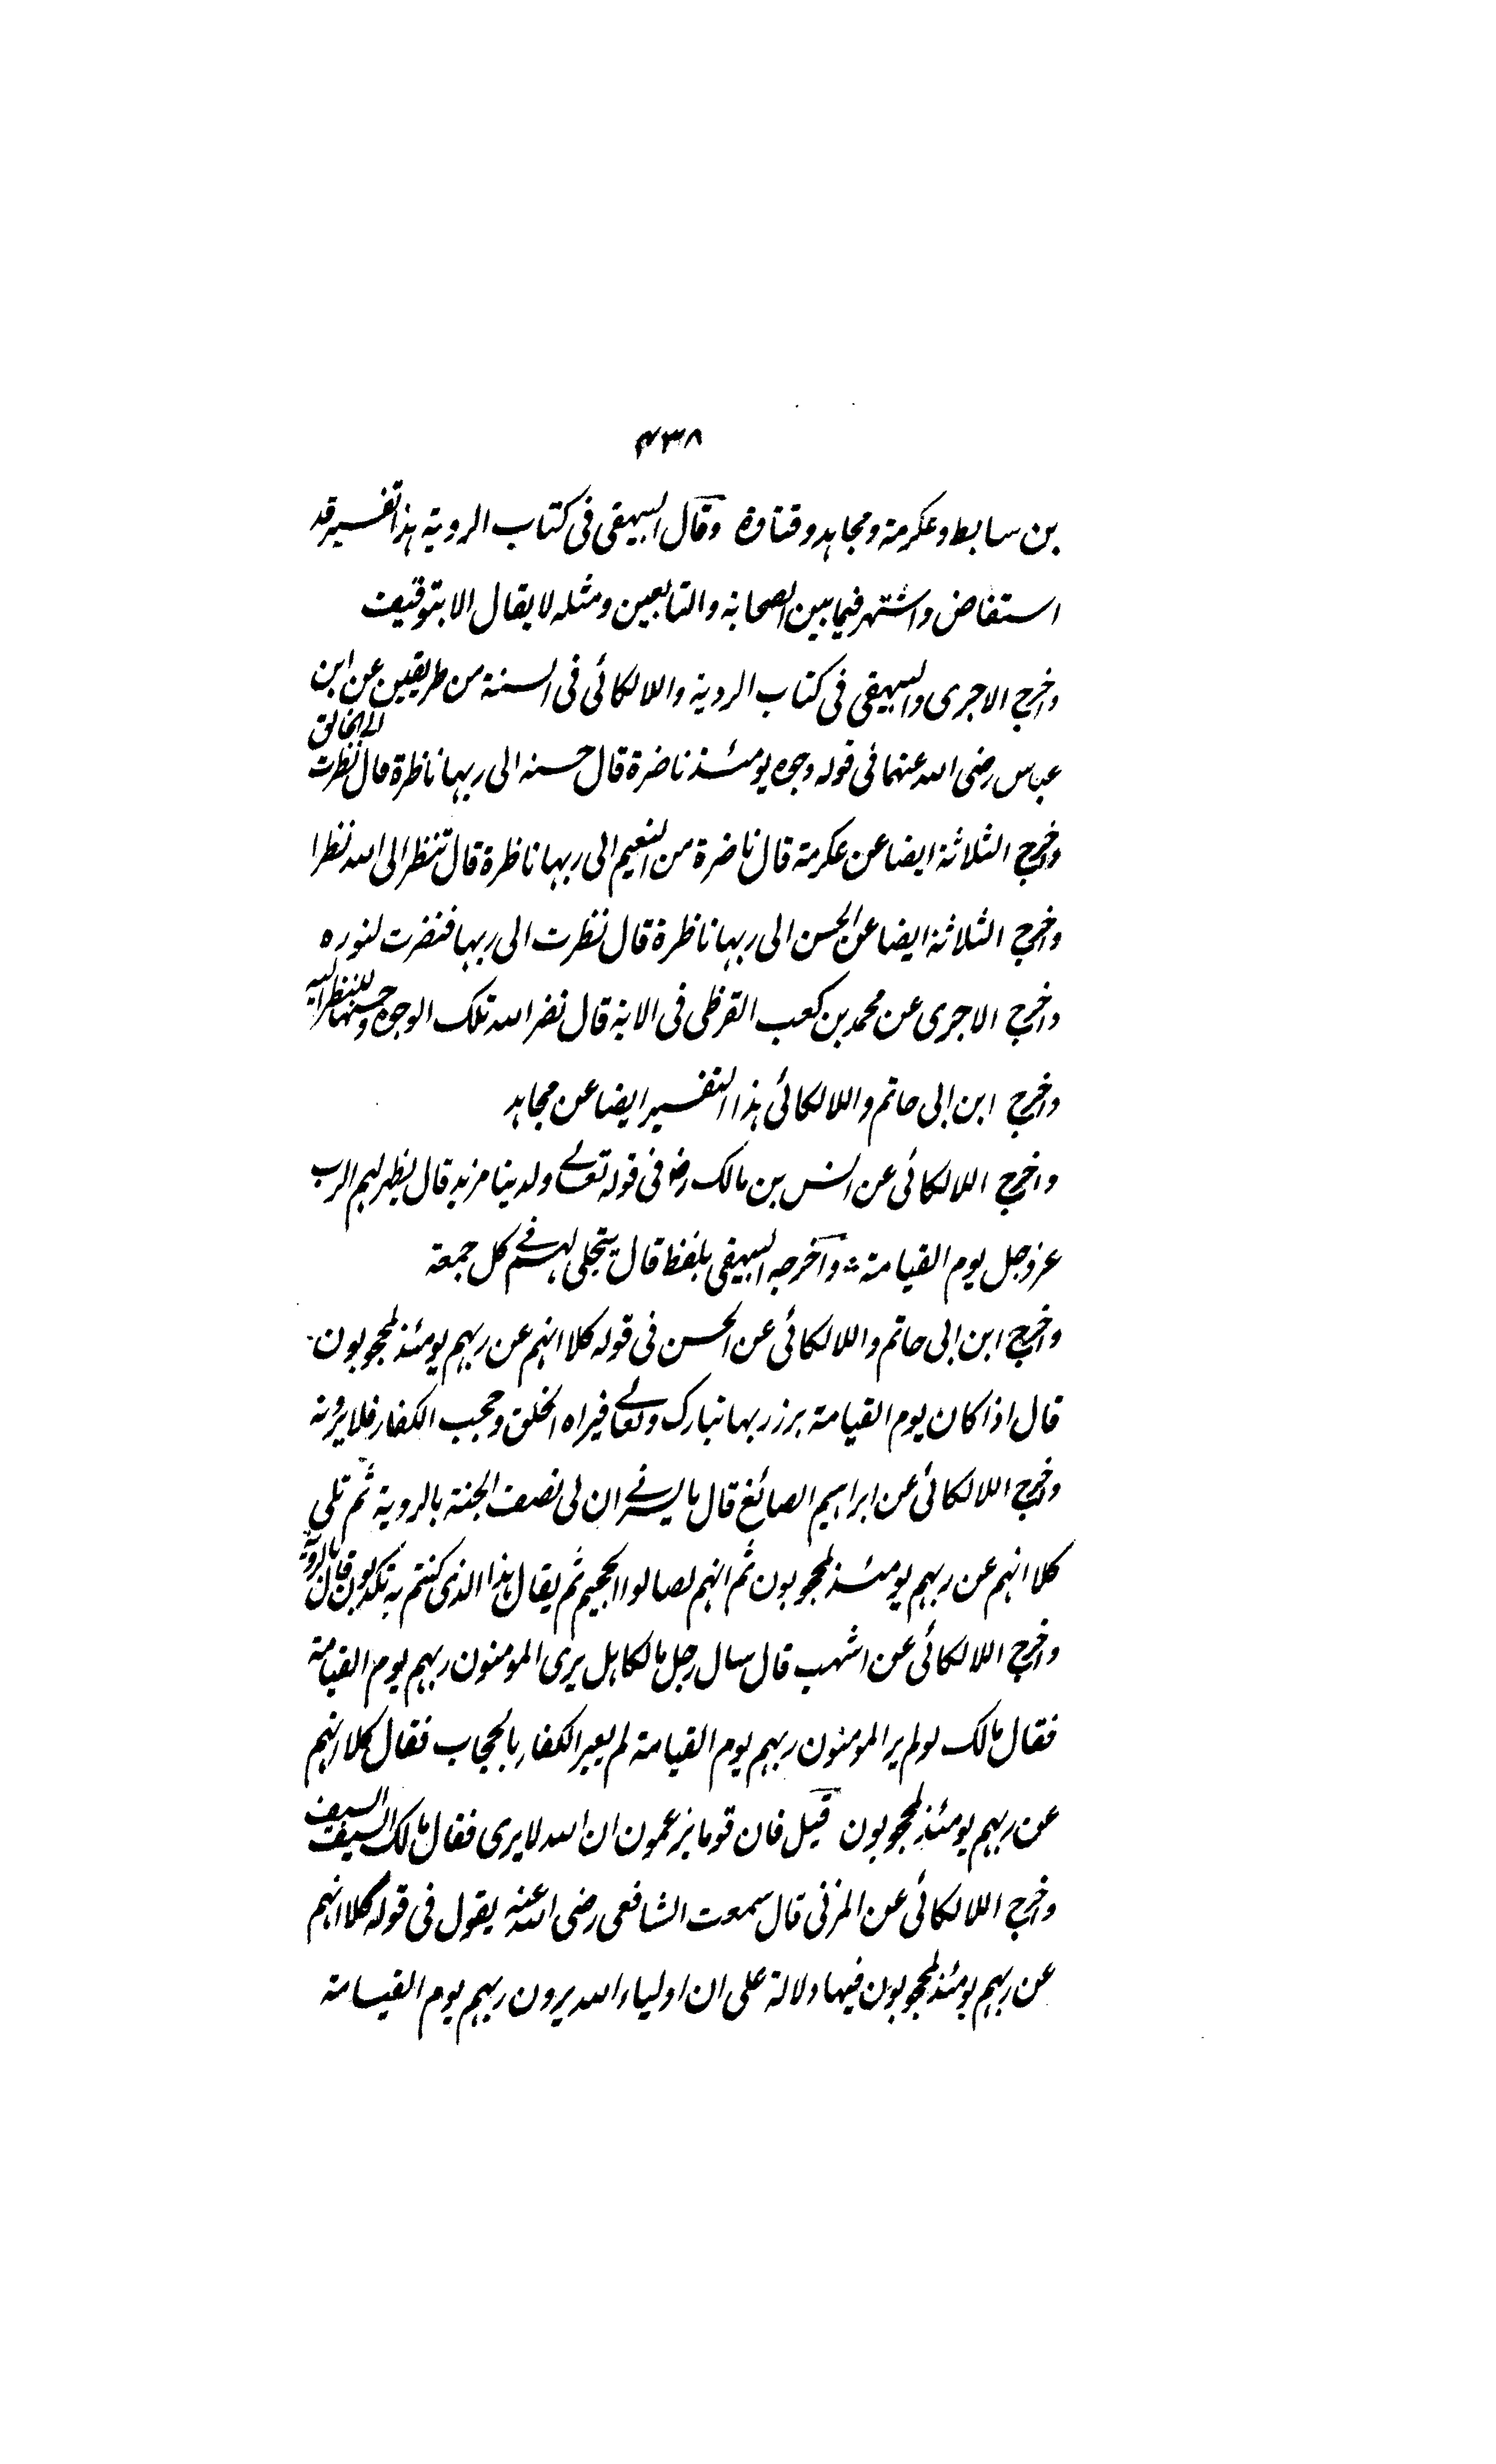 ۴۳۸
بن سابط وعكرمة ومجاہد وقتادة وقال البیہقی فی كتاب الرویة ہذا تفسیر قد
استفاض واشتہر فیما بین الصحابة والتابعین ومثله لا یقال الا بتوقیف
واخرج الاجری والبیہقی فی كتاب الرویة واللالكائی فی السنة من طریقین عن ابن
عباس رضی اللہ عنہما فی قوله وجوہ یومئذ ناضرة قال حسنه الی ربہا ناظرة قال نظرت الی الخالق
واخرج الثلاثة ایضا عن عكرمة قال ناضرة من النعیم الی ربہا ناظرة قال تنظر الی اللہ نظرا
واخرج الثلاثة ایضا عن الحسن الی ربہا ناظرة قال نظرت الی ربہا فنضرت لنورہ
واخرج الاجری عن محمد بن كعب القرظی فی الایة قال نضر اللہ تلك الوجوہ وحسنہا للنظر الیہ
واخرج ابن ابی حاتم واللالكائی ہذا التفسیر ایضا عن مجاہد
واخرج اللالكائی عن انس بن مالك رضـ فی قوله تعالے ولدینا مزید قال یظہر لہم الرب
عز وجل یوم القیامة ؞ واخرجه البیہقی بلفظ قال یتجلی لہم فے كل جمعة
واخرج ابن ابی حاتم واللالكائی عن الحسن فی قوله كلا انہم عن ربہم یومئذ لمحجوبون۔
قال اذا كان یوم القیامة برز ربہا تبارك وتعالے فیراہ الخلق وحجب الكفار فلا یرونه
واخرج اللالكائی عن ابراہیم الصائغ قال ما یسرنے ان لی نصف الجنة بالرویة ثم تلی
كلا انہم عن ربہم یومئذ لمحجوبون ثم انہم لصالوا الجحیم ثم یقال ہذا الذی كنتم به تكذبون قال بالرویة
واخرج اللالكائی عن اشہب قال سال رجل مالكا ہل یری المومنون ربہم یوم القیامة
فقال مالك لو لم یر المومنون ربہم یوم القیامة لم یعیر الكفار بالحجاب فقال كلا انہم
عن ربہم یومئذ لمحجوبون قیل فان قوما یزعمون ان اللہ لا یری فقال مالك السیف السیف
واخرج اللالكائی عن المزنی قال سمعت الشافعی رضی اللہ عنه یقول فی قوله كلا انہم
عن ربہم یومئذ لمحجوبون فیہا دلالة علی ان اولیاء اللہ یرون ربہم یوم القیامة